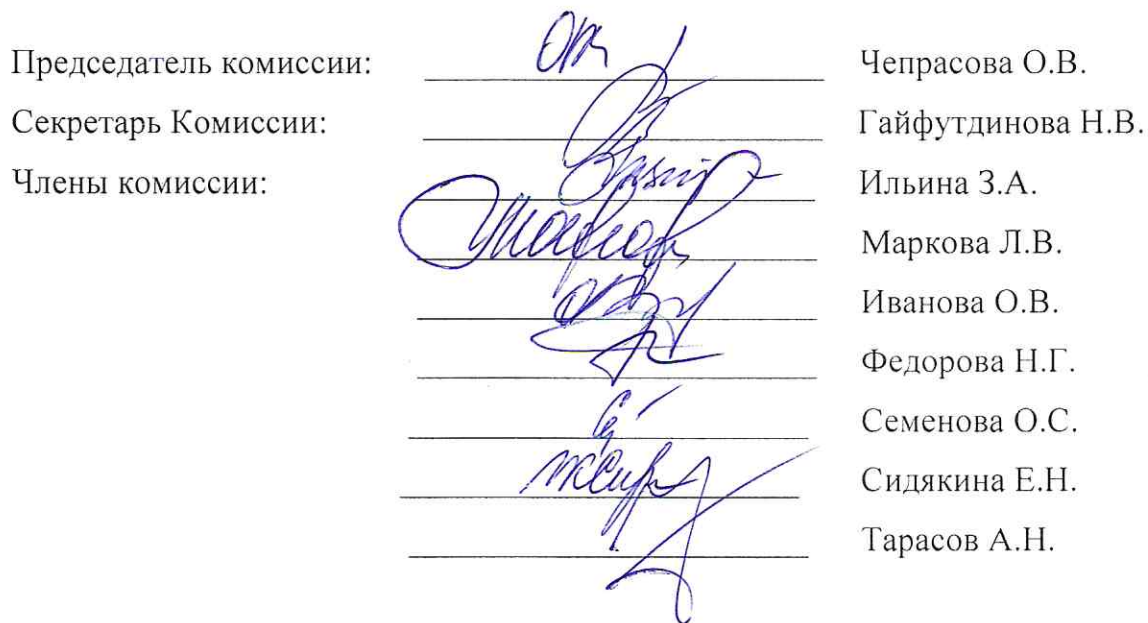 Председатель комиссии: Чепрасова О.В.
Секретарь Комиссии: Гайфутдинова Н.В.
Члены комиссии: Ильина З.А.
Маркова Л.В.
Иванова О.В.
Федорова Н.Г.
Семенова О.С.
Сидякина Е.Н.
Тарасов А.Н.